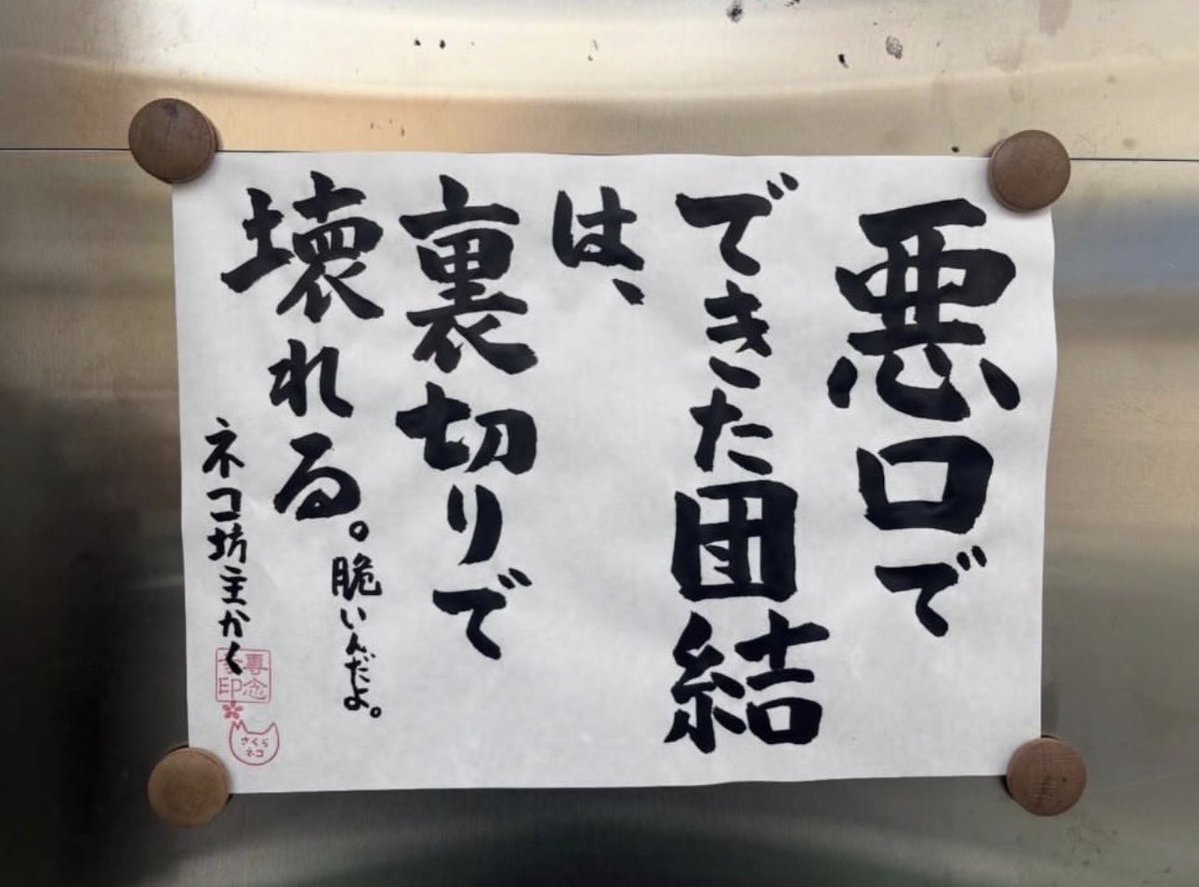 悪口で
できた団結
は、
裏切りで
壊れる。
脆いんだよ。
ネコ坊主かく
専念
寺印
さくら
ネコ